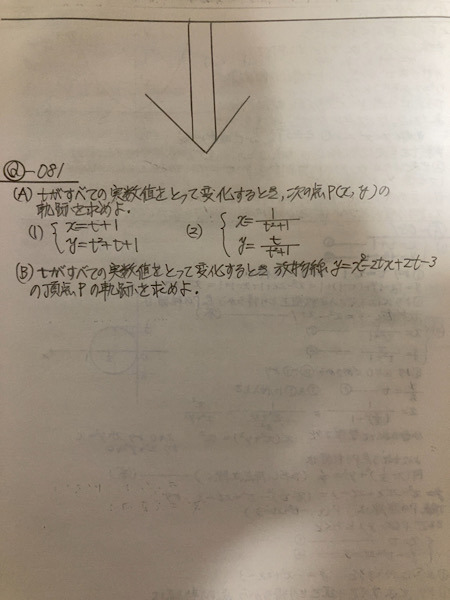 Ⓠ-081
(A) tがすべての実数値をとって変化するとき、次の点P(x, y)の
軌跡を求めよ.
(1) { x=t+1 (2) { x=1/(t²+1)
y=t²+t+1 y=t/(t²+1)
(B) tがすべての実数値をとって変化するとき 放物線 y=x²-2tx+2t-3
の頂点Pの軌跡を求めよ.